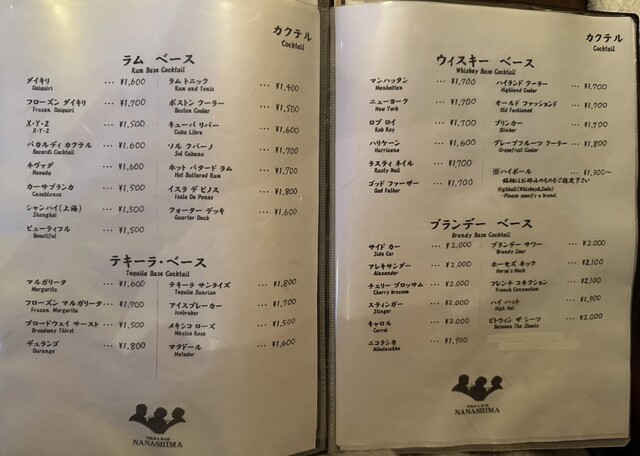 カクテル
Cocktail
ラム ベース
Rum Base Cocktail
ダイキリ … ¥1,600
Daiquiri
フローズン ダイキリ … ¥1,700
Frozen Daiquiri
X・Y・Z … ¥1,500
X-Y-Z
バカルディ カクテル … ¥1,600
Bacardi Cocktail
ネヴァダ … ¥1,600
Nevada
カーサブランカ … ¥1,500
Casablanca
シャンハイ(上海) … ¥1,500
Shanghai
ビューティフル … ¥1,500
Beautiful
ラム トニック … ¥1,400
Rum and Tonic
ボストン クーラー … ¥1,500
Boston Cooler
キューバ リバー … ¥1,600
Cuba Libre
ソル クバーノ … ¥1,700
Sol Cubano
ホット バタード ラム … ¥1,700
Hot Buttered Rum
イスラ デ ピノス … ¥1,800
Isla De Penos
フォーター デッキ … ¥1,600
Quarter Deck
テキーラ・ベース
Tequila Base Cocktail
マルガリータ … ¥1,600
Margarita
フローズン マルガリータ… ¥1,700
Frozen Margarita
ブロードウェイ サースト… ¥1,500
Broadway Thirst
デュランゴ … ¥1,500
Durango
テキーラ サンライズ … ¥1,800
Tequila Sunrise
アイスブレーカー … ¥1,700
Icebraker
メキシコ ローズ … ¥1,500
Mexico Rose
マタドール … ¥1,600
Matador
VODKA BAR
NANASHIMA
カクテル
Cocktail
ウィスキー ベース
Whiskey Base Cocktail
マンハッタン … ¥1,700
Manhattan
ニューヨーク … ¥1,700
New York
ロブ ロイ … ¥1,700
Rob Roy
ハリケーン … ¥1,600
Hurricane
ラスティ ネイル … ¥1,700
Rusty Nail
ゴッド ファーザー … ¥1,700
God Father
ハイランド クーラー … ¥1,700
Highland Cooler
オールド ファッションド … ¥1,700
Old Fashioned
ブリンカー … ¥1,700
Blinker
グレープフルーツ クーラー … ¥1,800
Grapefruit Cooler
※ハイボール ¥1,300～
銘柄はお好みのものをご指定下さい
Highball(Whiskey&Soda)
-Please specify a brand.
ブランデー ベース
Brandy Base Cocktail
サイド カー … ¥2,000
Side Car
アレキサンダー … ¥2,000
Alexander
チェリー ブロッサム … ¥2,000
Cherry brossom
スティンガー … ¥2,000
Stinger
キャロル … ¥2,000
Carrol
ニコラシカ … ¥1,900
Nikolaschka
ブランデー サワー … ¥2,000
Brandy Sour
ホーセズ ネック … ¥2,100
Horse's Neck
フレンチ コネクション … ¥2,100
French Connection
ハイ ハット … ¥1,900
High Hat
ビトウィン ザ シーツ … ¥2,000
Between The Sheets
VODKA BAR
NANASHIMA